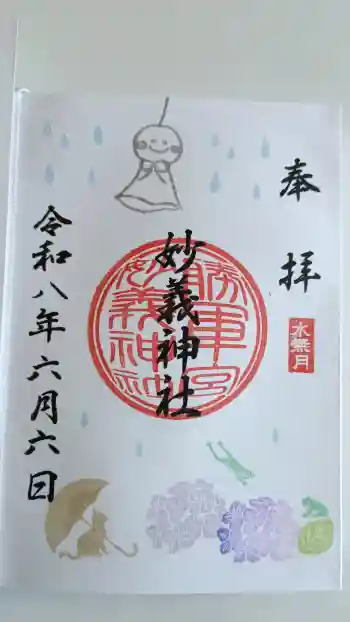 奉拝
水無月
妙義神社
令和八年六月六日